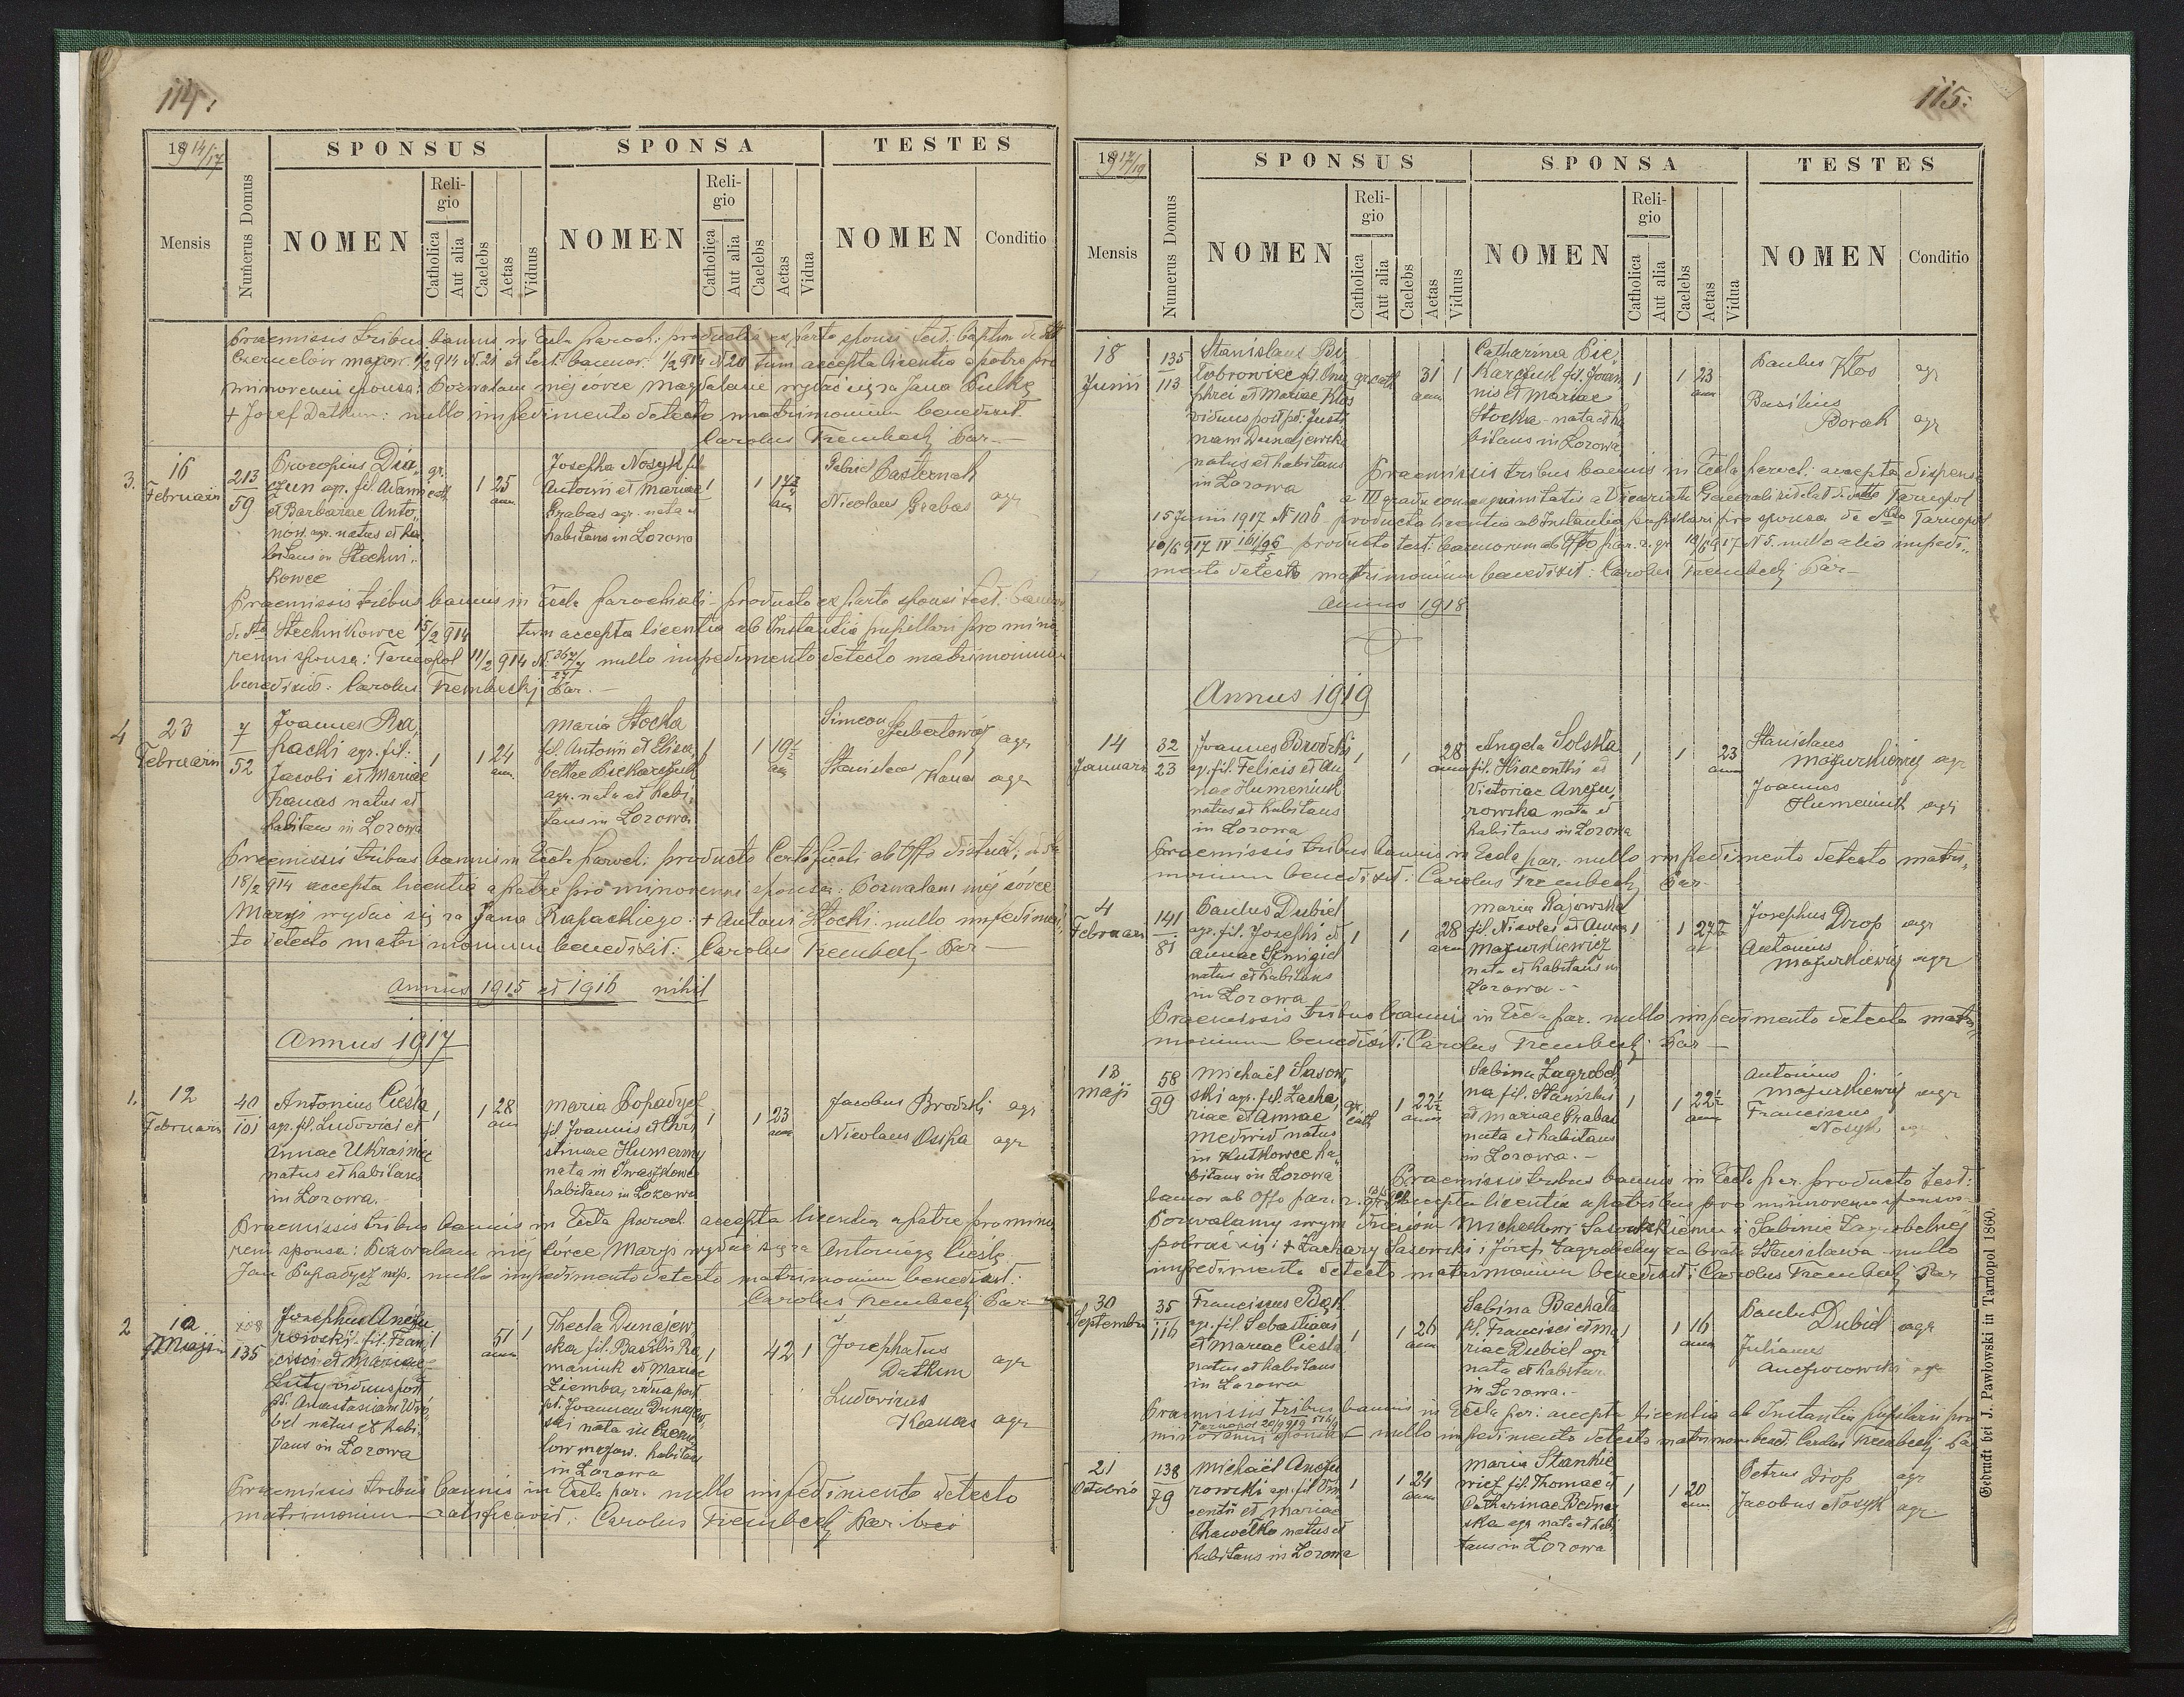 114.
1914/17
Mensis
Numerus Domus
SPONSUS
NOMEN
Religio
Catholica
Aut alia
Caelebs
Aetas
Viduus
SPONSA
NOMEN
Religio
Catholica
Aut alia
Caelebs
Aetas
Vidua
TESTES
NOMEN
Conditio
Praemissis tribus bannis in Eccla paroch: ex parte sponsi test. baptism
1/2 914 N.21 et test. bannor. 1/2 914 N 20 tum accepta licentia a patre pro
minorenni sponsa: Pozwalam mej córce Magdalenie wydać się za Jana
+ Józef Datkun: nullo impedimento detecto matrimonium benedixit
Carolus Trembecki Par
3. 16 Februarii
213
59
Procopius Dia
czun agr. fil. Adami
et Barbarae Anto
nów. agr. natus et ha
bitans in Stechni
kowce
gr. cath
1 25 ann
Josepha Nosyk fil
Antonii et Mariae
Grabas agr. nata et
habitans in Lozowa
1
1
Gabriel Pasternak
Nicolaus Grabas agr
Praemissis tribus bannis in Eccla parochiali - producto ex parte sponsi test. bannor
Stechnikowce 15/2 914 tum accepta licentia ab Instantia pupillari pro mino
renni sponsa: Tarnopol 11/2 914 nullo impedimento detecto matrimonium
benedixit: Carolus Trembecki Par. -
4 23 Februarii
7
52
Joannes Ra
packi agr. fil.
Jacobi et Mariae
Kanas natus et
habitans in Lozowa
1
1 24 ann.
Maria Stocka
fil. Antonii et Elisa
bethae Piekarczuk
agr. nata et habi
tans in Lozowa
1
1 19 1/2
Simeon Hubertowicz agr
Stanislaus Kanas agr
Praemissis tribus bannis in Eccla paroch: producto Certificati ab Offo district:
18/2 914 accepta licentia a patre pro minorenni sponsa: Pozwalam mej córce
Maryi wydać się za Jana Rapackiego: + Antoni Stocki: nullo impedimen
to detecto matrimonium benedixit: Carolus Trembecki Par
Annus 1915 et 1916 nihil
Annus 1917
1. 12 Februarii
40
101
Antonius Cieśla
agr. fil. Ludovici et
Annae Ukrainiec
natus et habitans
in Lozowa.
1
1 28 ann
Maria Popadycz
fil. Joannis et Chri
stinae Humenny
nata in
habitans in Lozowa
1
1 23 ann
Jacobus Brodzki agr
Nicolaus Osipa agr
Praemissis tribus bannis in Eccla paroch accepta licentia a patre pro mino
ren sponsa: Pozwalam mej córce Maryi wydać się za Antoniego Cieślę.
Jan Popadycz mp. nullo impedimento detecto matrimonium benedixit:
Carolus Trembecki Par
2 12 Maji
108
135
Josephus Anczu
rowski fil. Fran
cisci et Mariae
Luty viduus post
pt. Anastasiam
natus et habi
tans in Lozowa
1
51 ann 1
Thecla Dunajew
ska fil. Basilii Ro
maniuk et Mariae
Ziemba, vidua post
pt. Joannem Dunajew
ski nata in Czerny
low mazow. habitans
in Lozowa
1
42 1
Josephatus Datkun agr
Ludovicus Kanas agr
Praemissis tribus bannis in Eccla par. nullo impedimento detecto
matrimonium ratificavit: Carolus Trembecki Par loci
115.
1917/19
Mensis
Numerus Domus
SPONSUS
NOMEN
Religio
Catholica
Aut alia
Caelebs
Aetas
Viduus
SPONSA
NOMEN
Religio
Catholica
Aut alia
Caelebs
Aetas
Vidua
TESTES
NOMEN
Conditio
18 Junii
135
113
Stanislaus
fil. Onu
phrei et Mariae Klos
viduus post pt. Justi
nam Dunajewska
natus et habitans
in Lozowa
gr. cath
31 ann 1
Catharina Pie
karczuk fil. Joan
nis et Mariae
Stocka nata et ha
bitans in Lozowa
1
1 23 ann
Paulus Klos agr
Basilius Borak agr
Praemissis tribus bannis in Eccla paroch: accepta dispens
a III gradu consanguinitatis a Vicariatu Generali Tarnopol
15 Junii 1917 N 106 producta licentia ab Instantia pupillari pro sponsa de dtto Tarnopol
16/6 917 IV producto test. bannorum ab Offo par. r. gr. 18/6 917 N 5. nullo alio impedi
mento detecto matrimonium benedixit: Carolus Trembecki Par
Annus 1918
Annus 1919
14 Januarii
32
23
Joannes Brodzki
agr. fil. Felicis et An
nae Humeniuk
natus et habitans
in Lozowa
1
1
28 ann
Angela Solska
fil. Hiacenthi et
Victoriae Anczu
rowska nata et
habitans in Lozowa
1
1
23 ann
Stanislaus Mazurkiewicz agr
Joannes Humeniuk agr
Praemissis tribus bannis in Eccla par. nullo impedimento detecto matri
monium benedixit: Carolus Trembecki Par
4 Februarii
141
81
Paulus Dubiel
agr. fil. Josephi et
Annae Smigiel
natus et habitans
in Lozowa
1
1
28 ann
Maria Gajowska
fil. Nicolai et Annae
Mazurkiewicz
nata et habitans in
Lozowa. -
1
1 27 1/2
Josephus Drop agr
Antonius Mazurkiewicz agr
Praemissis tribus bannis in Eccla par. nullo impedimento detecto matri
monium benedixit: Carolus Trembecki Par
13 Maji
58
99
Michaël Sasow
ski agr. fil. Zacha
riae et Annae
Medwid natus
in Kutkowce ha
bitans in Lozowa
gr. cath
1 22 1/2 ann
Sabina Zagrobel
na fil. Stanislai
et Mariae Grabas
nata et habitans
in Lozowa. -
1
1 22 1/2 ann
Antonius Mazurkiewicz agr
Franciscus Nosyk agr
Praemissis tribus bannis in Eccla par. producto test:
bannor ab Offo par. r. gr. accepta licentia a patribus pro minorenn sponsis
Pozwalamy swym dzieciom Michałowi Sasowskiemu i Sabinie Zagrobelnej
pobrać się: + Zachary Sasowski i Józef Zagrobelny za brata Stanisława nullo
impedimento detecto matrimonium benedixit: Carolus Trembecki Par
30 Septembris
35
116
Franciscus Bąk
agr. fil Sebastiani
et Mariae Cieśla
natus et habitans
in Lozowa
1
1 26 ann
Sabina Bachata
fil. Francisci et Ma
riae Dubiel agr
nata et habitan
in Lozowa. -
1
1 16 ann
Paulus Dubiel agr
Julianus Anczurowski agr
Praemissis tribus bannis in Eccla par: accepta licentia ab Instantia pupilarii pro
minorenni sponsa nullo impedimento detecto matrimon. bened. Carolus Trembecki Pa
21 Octobris
138
79
Michaël Anczu
rowski agr. fil Vin
centii et Mariae
Chawełko natus et
habitans in Lozowa
1
1 24 ann
Maria Stankie
wicz fil. Thomae et
Catharinae Bednar
ska agr nata et habi
tans in Lozowa
1
1 20 ann
Petrus Drop agr
Jacobus Nosyk agr
Gedruckt bei J. Pawłowski in Tarnopol 1860.